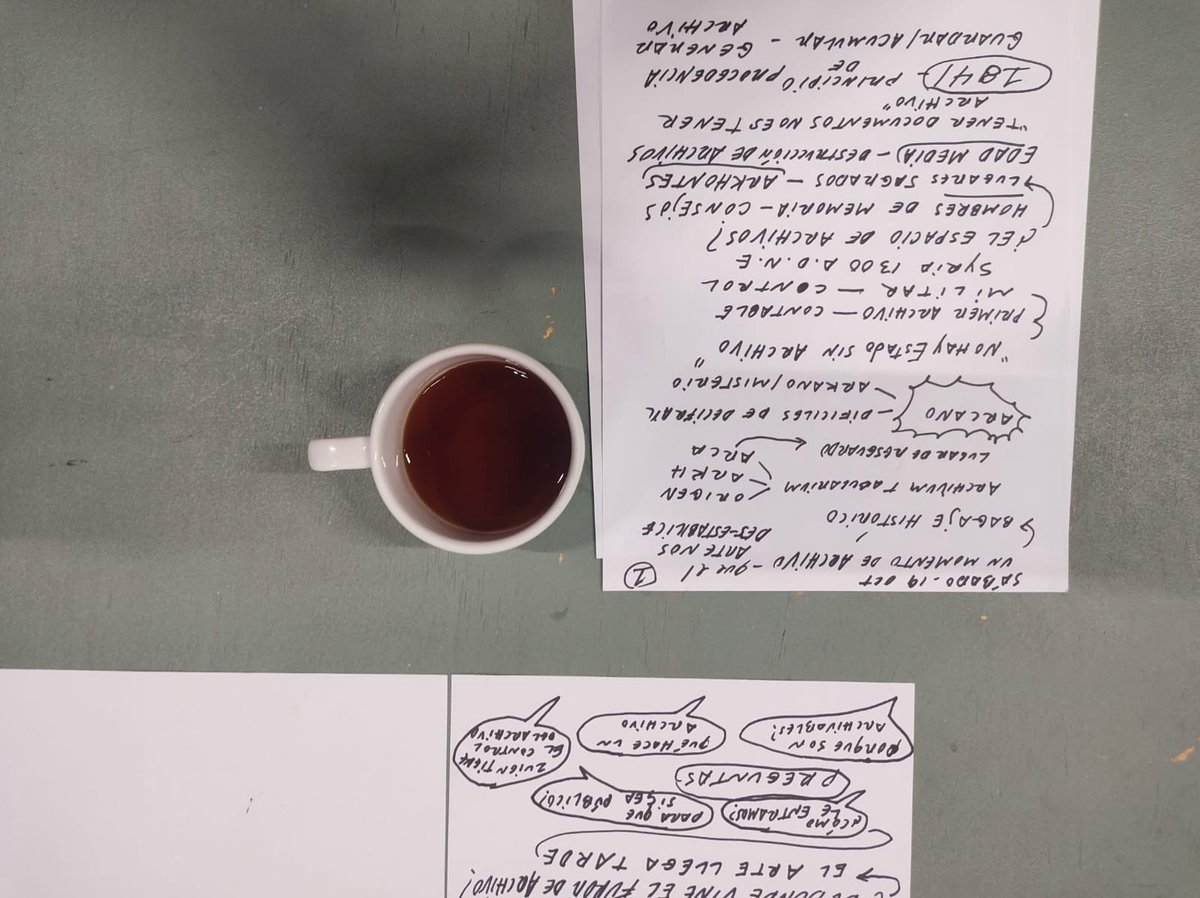 SÁBADO-19 OCT
UN MOMENTO DE ARCHIVO - que el ARTE NOS DES-ESTABILICE
1
→ BAGAJE HISTÓRICO
ARCHIVUM TABULARIUM
ORIGEN
ARKH
ARCA
LUGAR DE RESGUARDO
ARCANO - DIFICILES DE DECIFRAR
ARKANO/MISTERIO
"NO HAY ESTADO SIN ARCHIVO"
PRIMER ARCHIVO - CONTABLE
MILITAR - CONTROL
SYRIA 1300 A.D.N.E
¿EL ESPACIO DE ARCHIVOS?
HOMBRES DE MEMORIA - CONSEJOS
→ LUGARES SAGRADOS - ARKHONTES
EDAD MEDIA - DESTRUCCIÓN DE ARCHIVOS
"TENER DOCUMENTOS NO ES TENER
ARCHIVO"
1841 - PRINCIPIO DE PROCEDENCIA
GUARDAR/ACUMULAR - GENERAR
ARCHIVO
DE DONDE VINE EL FUROR DE ARCHIVO!
→ EL ARTE LLEGA TARDE
¿CÓMO
LE ENTRAMOS?
PARA QUE
SI SEA PÚBLICO!
PREGUNTAS
PORQUE SON
ARCHIVABLES?
QUÉ HACE UN
ARCHIVO
QUIEN TIENE
EL CONTROL
DEL ARCHIVO